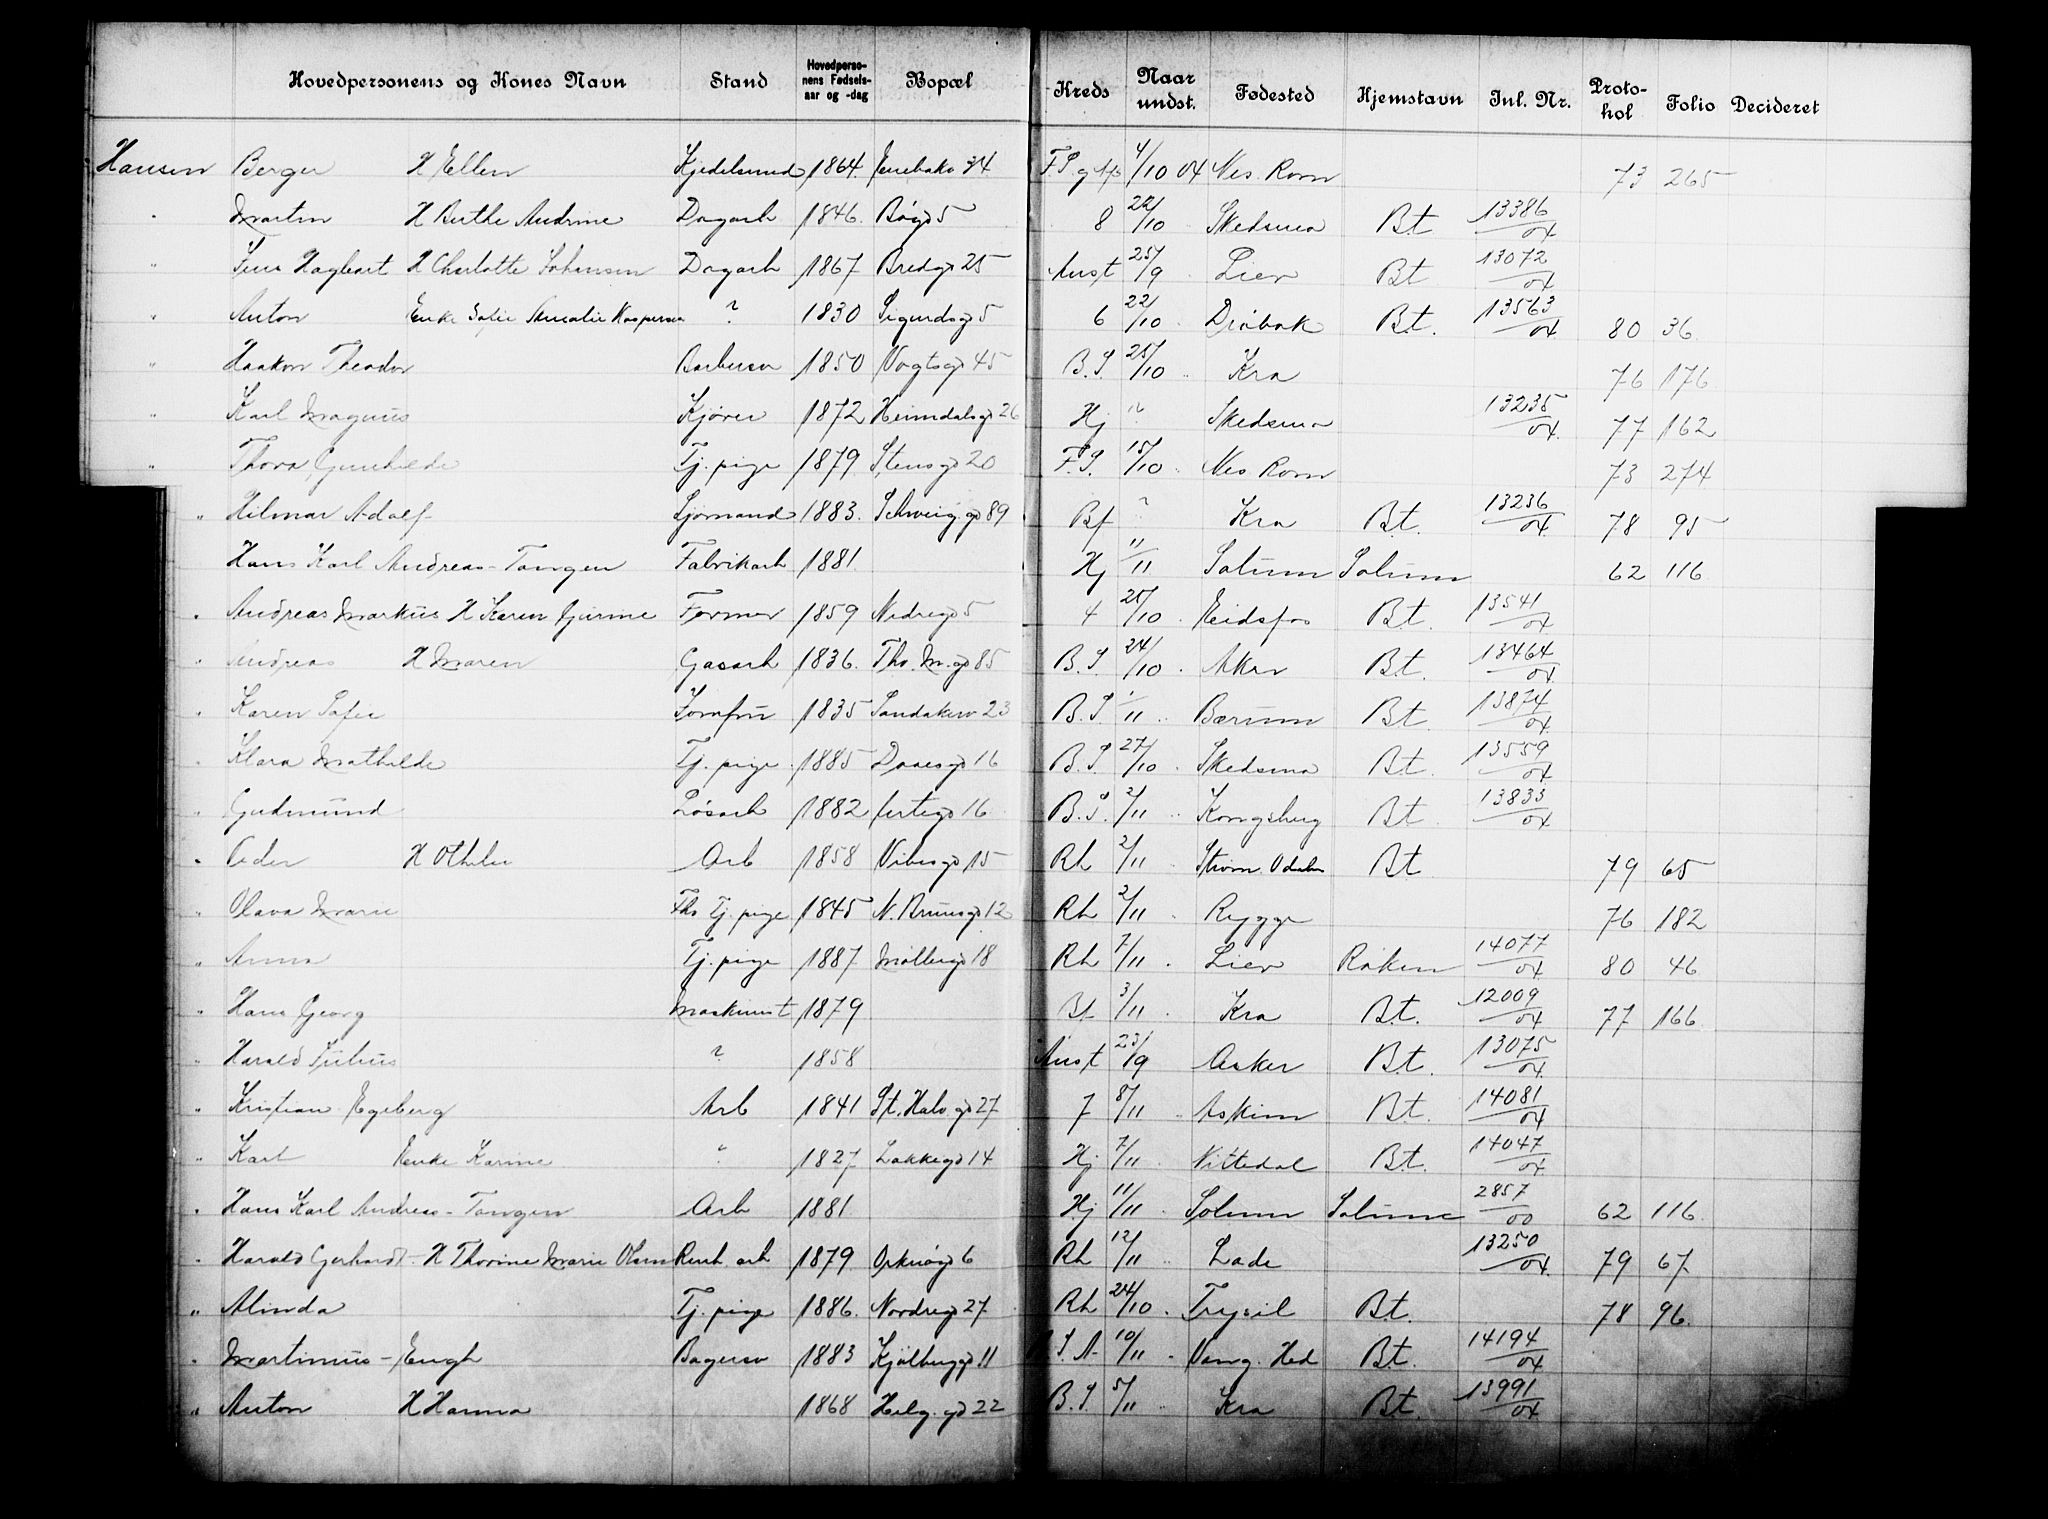 Hovedpersonens og Kones Navn Stand Hovedperso-nens Fødsels-aar og -dag Bopæl Kreds Naar undst. Fødested Hjemstavn Jnl. Nr. Proto-kol Folio Decideret
Hansen Berger H Ellen Kjedelsmed 1864 34 F.S. 4/10 04 Nes. Rom 73 265
" Martin H Berthe Andrine Dagarb 1846. Bøgd 5 8 22/10 Skedsmo Bt 13386/04
" Jens Hagbart H Charlotte Johansen Dagarb 1867 Bredgd 25 Anst 25/9 Lier Bt 13072/04
" Anton Enke Sofie Amalie Kaspersen ? 1830 Sigurdsgd 5 6 22/10 Drøbak Bt. 13563/04 80 36
" Haakon Theodor Barbersv 1850 Vogtsgd 45 B.S. 25/10 " Kra 76 176
" Karl Magnus Kjører 1872 Heimdalsgd 26 Hj ? Skedsmo 13235/04 77 162
" Thora Gunhilde Tj. pige 1879 Stensgd 20 F.S. 15/10 " Nes Rom 73 274
" Hilmar Adolf Sjømand 1883. Schweig.gd 89 Bf ? Kra Bt. 13236/04 78 95
Hans Karl Andreas - Tangen Fabrikarb 1881. Hj 11/11 Solum Solum 62 116
" Andreas Markus H Karen Gurine Former 1859 Nedregd 5 4 25/10 Eidsfos Bt. 13541/04
" Andreas H Maren Gasarb 1836. Th. M.gd 85 B.S 24/10 Aker Bt. 13464/04
" Karen Sofie Jomfru 1835 Sandakerv 23 B.S. 1/11 " Bærum Bt 13874/04
" Klara Mathilde Tj. pige 1885 Daaesgd 16 B.S. 27/10 Skedsmo Bt. 13559/04
" Gudmund Løsarb 1882 16 B.S. 2/11 " Kongsberg Bt 13833/04
" Peder H Othilie Arb 1858 Vibesgd 15 Rh 2/11 Strøm. Odalen Bt 79 65
" Olava Marie Fhv Tj. pige 1845 N. Brunsgd 12 Rh 2/11 Rygge 76 182
" Anna Tj. pige 1887 Møllergd 18 Rh 7/11 Lier Røken 14077/04 80 46
" Hans Georg Maskinist 1879 Bf 3/11 Kra Bt. 12009/04 77 166
" Harald Julius ? 1858 Anst 23/9 Asker Bt. 13075/04
" Kristian Egeberg Arb 1841 St. Halv.gd 27 7 8/11 " Askim Bt. 14081/04
" Karl Enke Karine " 1827 Lakkegd 14 Hj 7/11 Nittedal Bt. 14047/04
" Hans Karl Andreas - Tangen Arb 1881 Hj 11/11 Solum Solum 2857/00 62 116.
" Harald Gerhardt - H Thorine Marie Olsen Renh arb 1879 Orknøgd 6 Rh 12/11 " Lade 13250/04. 79 67
" Alinda Tj. pige 1886. Nordregd 27 Rh 24/10 Trysil Bt. 78 96.
" Martinus - Engh Bagersv 1883 Kjølberggd 11 S. A- 10/11 Vang. Hed Bt. 14194/04
" Anton H Hanna 1868 Helg.gd 22 B.S. 5/11 " Kra Bt. 13991/04